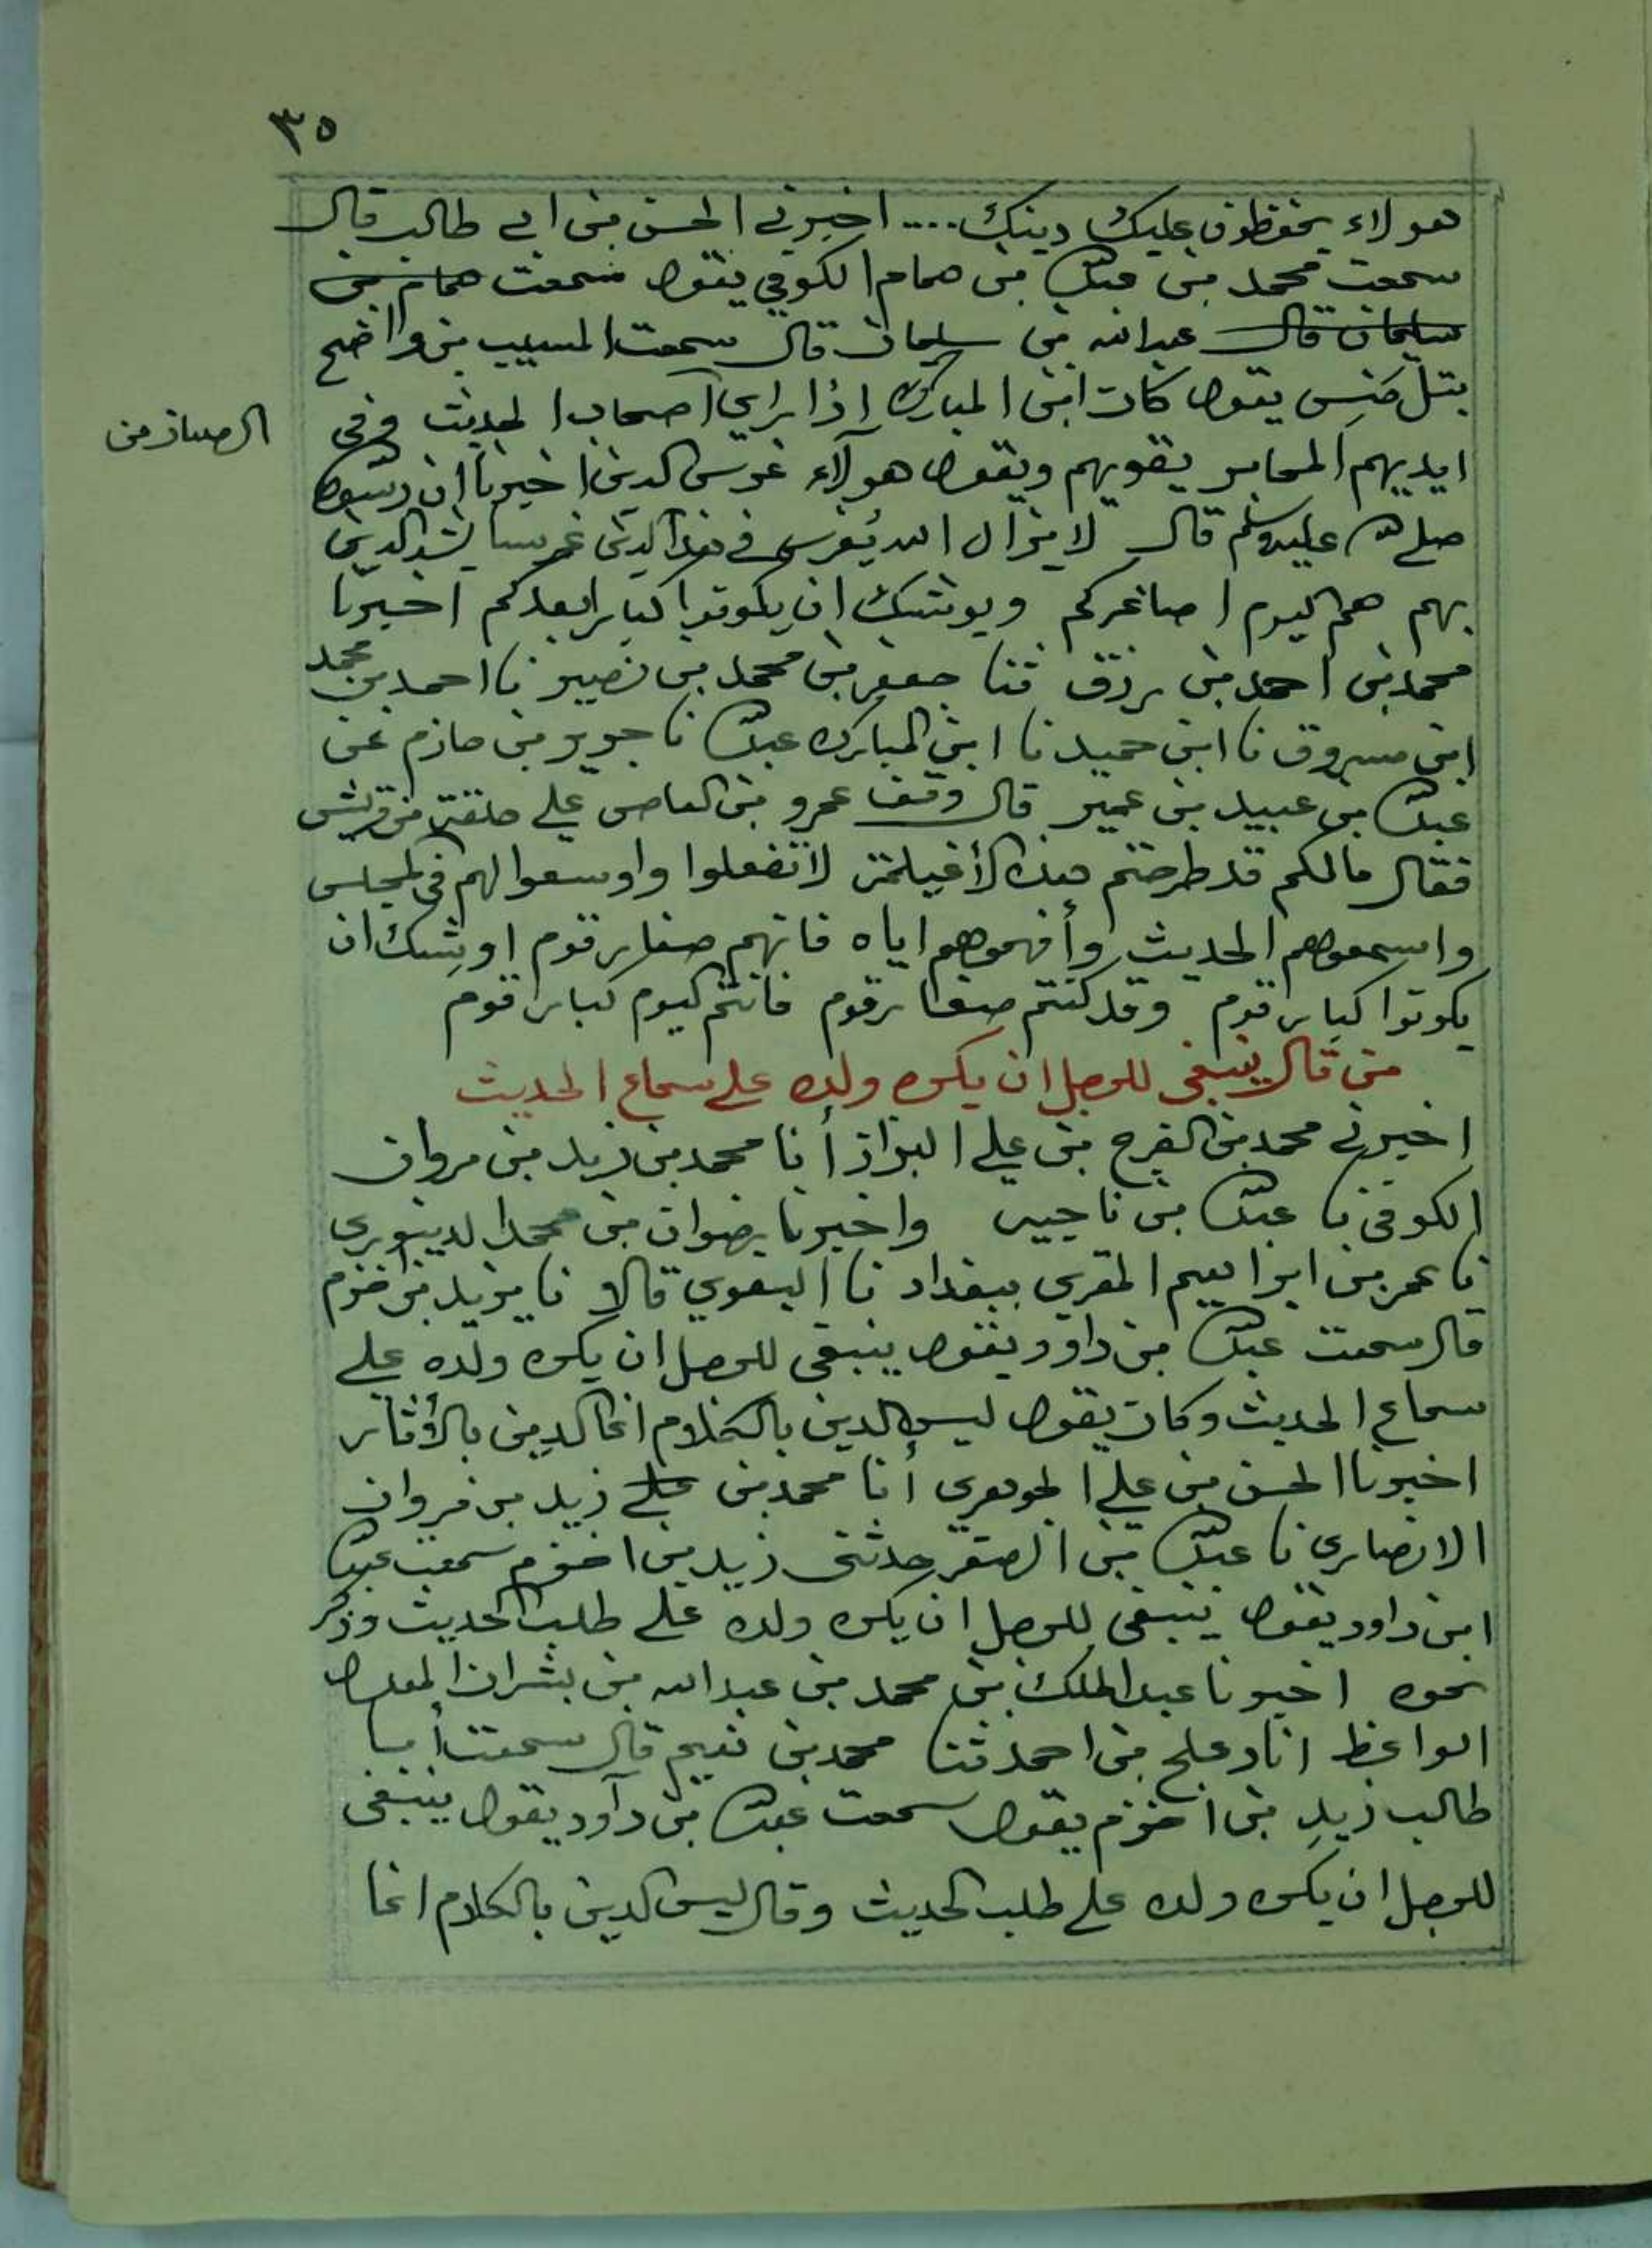 ٣٥
هولاء يحفظون عليك دينك .... اخبرني الحسن بن ابي طالب قال
سمعت محمد بن عبدالله بن همام الكوفي يقول سمعت همام بن
سليمان قال عبدالله بن سليمان قال سمعت المسيب بن واضح
بتل منس يقول كان ابن المبارك اذا راى اصحاب الحديث وفي
الصبيان من
ايديهم المحابر يقويهم ويقول هولآء غرس الدين اخبرنا ان رسول
صلى الله عليه وسلم قال لا يزال الله يغرس في هذا الدين غرسا يشد الدين
بهم هم اليوم اصاغركم ويوشك ان يكونوا كبارا بعدكم اخبرنا
محمد بن احمد بن رزق ثنا جعفر بن محمد بن نصير نا احمد بن محمد
ابن مسروق نا ابن حميد نا ابن المبارك عبدالله نا جرير بن حازم عن
عبدالله بن عبيد بن عمير قال وقف عمرو بن العاص على حلقة من قريش
فقال مالكم قد طرحتم هذه الأغيلمة لا تفعلوا واوسعوا لهم في المجلس
واسمعوهم الحديث وأفهموهم اياه فانهم صغار قوم اوشك ان
يكونوا كبار قوم وقد كنتم صغار قوم فانتم اليوم كبار قوم
من قال ينبغي للرجل ان يكره ولده على سماع الحديث
اخبرني محمد بن الفرج بن علي البزاز أنا محمد بن زيد بن مروان
الكوفي نا عبدالله بن ناجيه واخبرنا رضوان بن محمد الدينوري
نا عمر بن ابراهيم المقري ببغداد نا البغوي قالا نا يزيد بن اخزم
قال سمعت عبدالله بن داود يقول ينبغي للرجل ان يكره ولده على
سماع الحديث وكان يقول ليس الدين بالكلام انما الدين بالأثار
اخبرنا الحسن بن علي الجوهري أنا محمد بن علي زيد بن مروان
الانصاري نا عبدالله بن الصقر حدثني زيد بن اخزم سمعت عبدالله
ابن داود يقول ينبغي للرجل ان يكره ولده على طلب الحديث وذكر
نحوه اخبرنا عبد الملك بن محمد بن عبدالله بن بشران المعدل
الواعظ انا دعلج بن احمد ثنا محمد بن نعيم قال سمعت أبا
طالب زيد بن اخزم يقول سمعت عبدالله بن دآود يقول ينبغي
للرجل ان يكره ولده على طلب الحديث وقال ليس الدين بالكلام انما